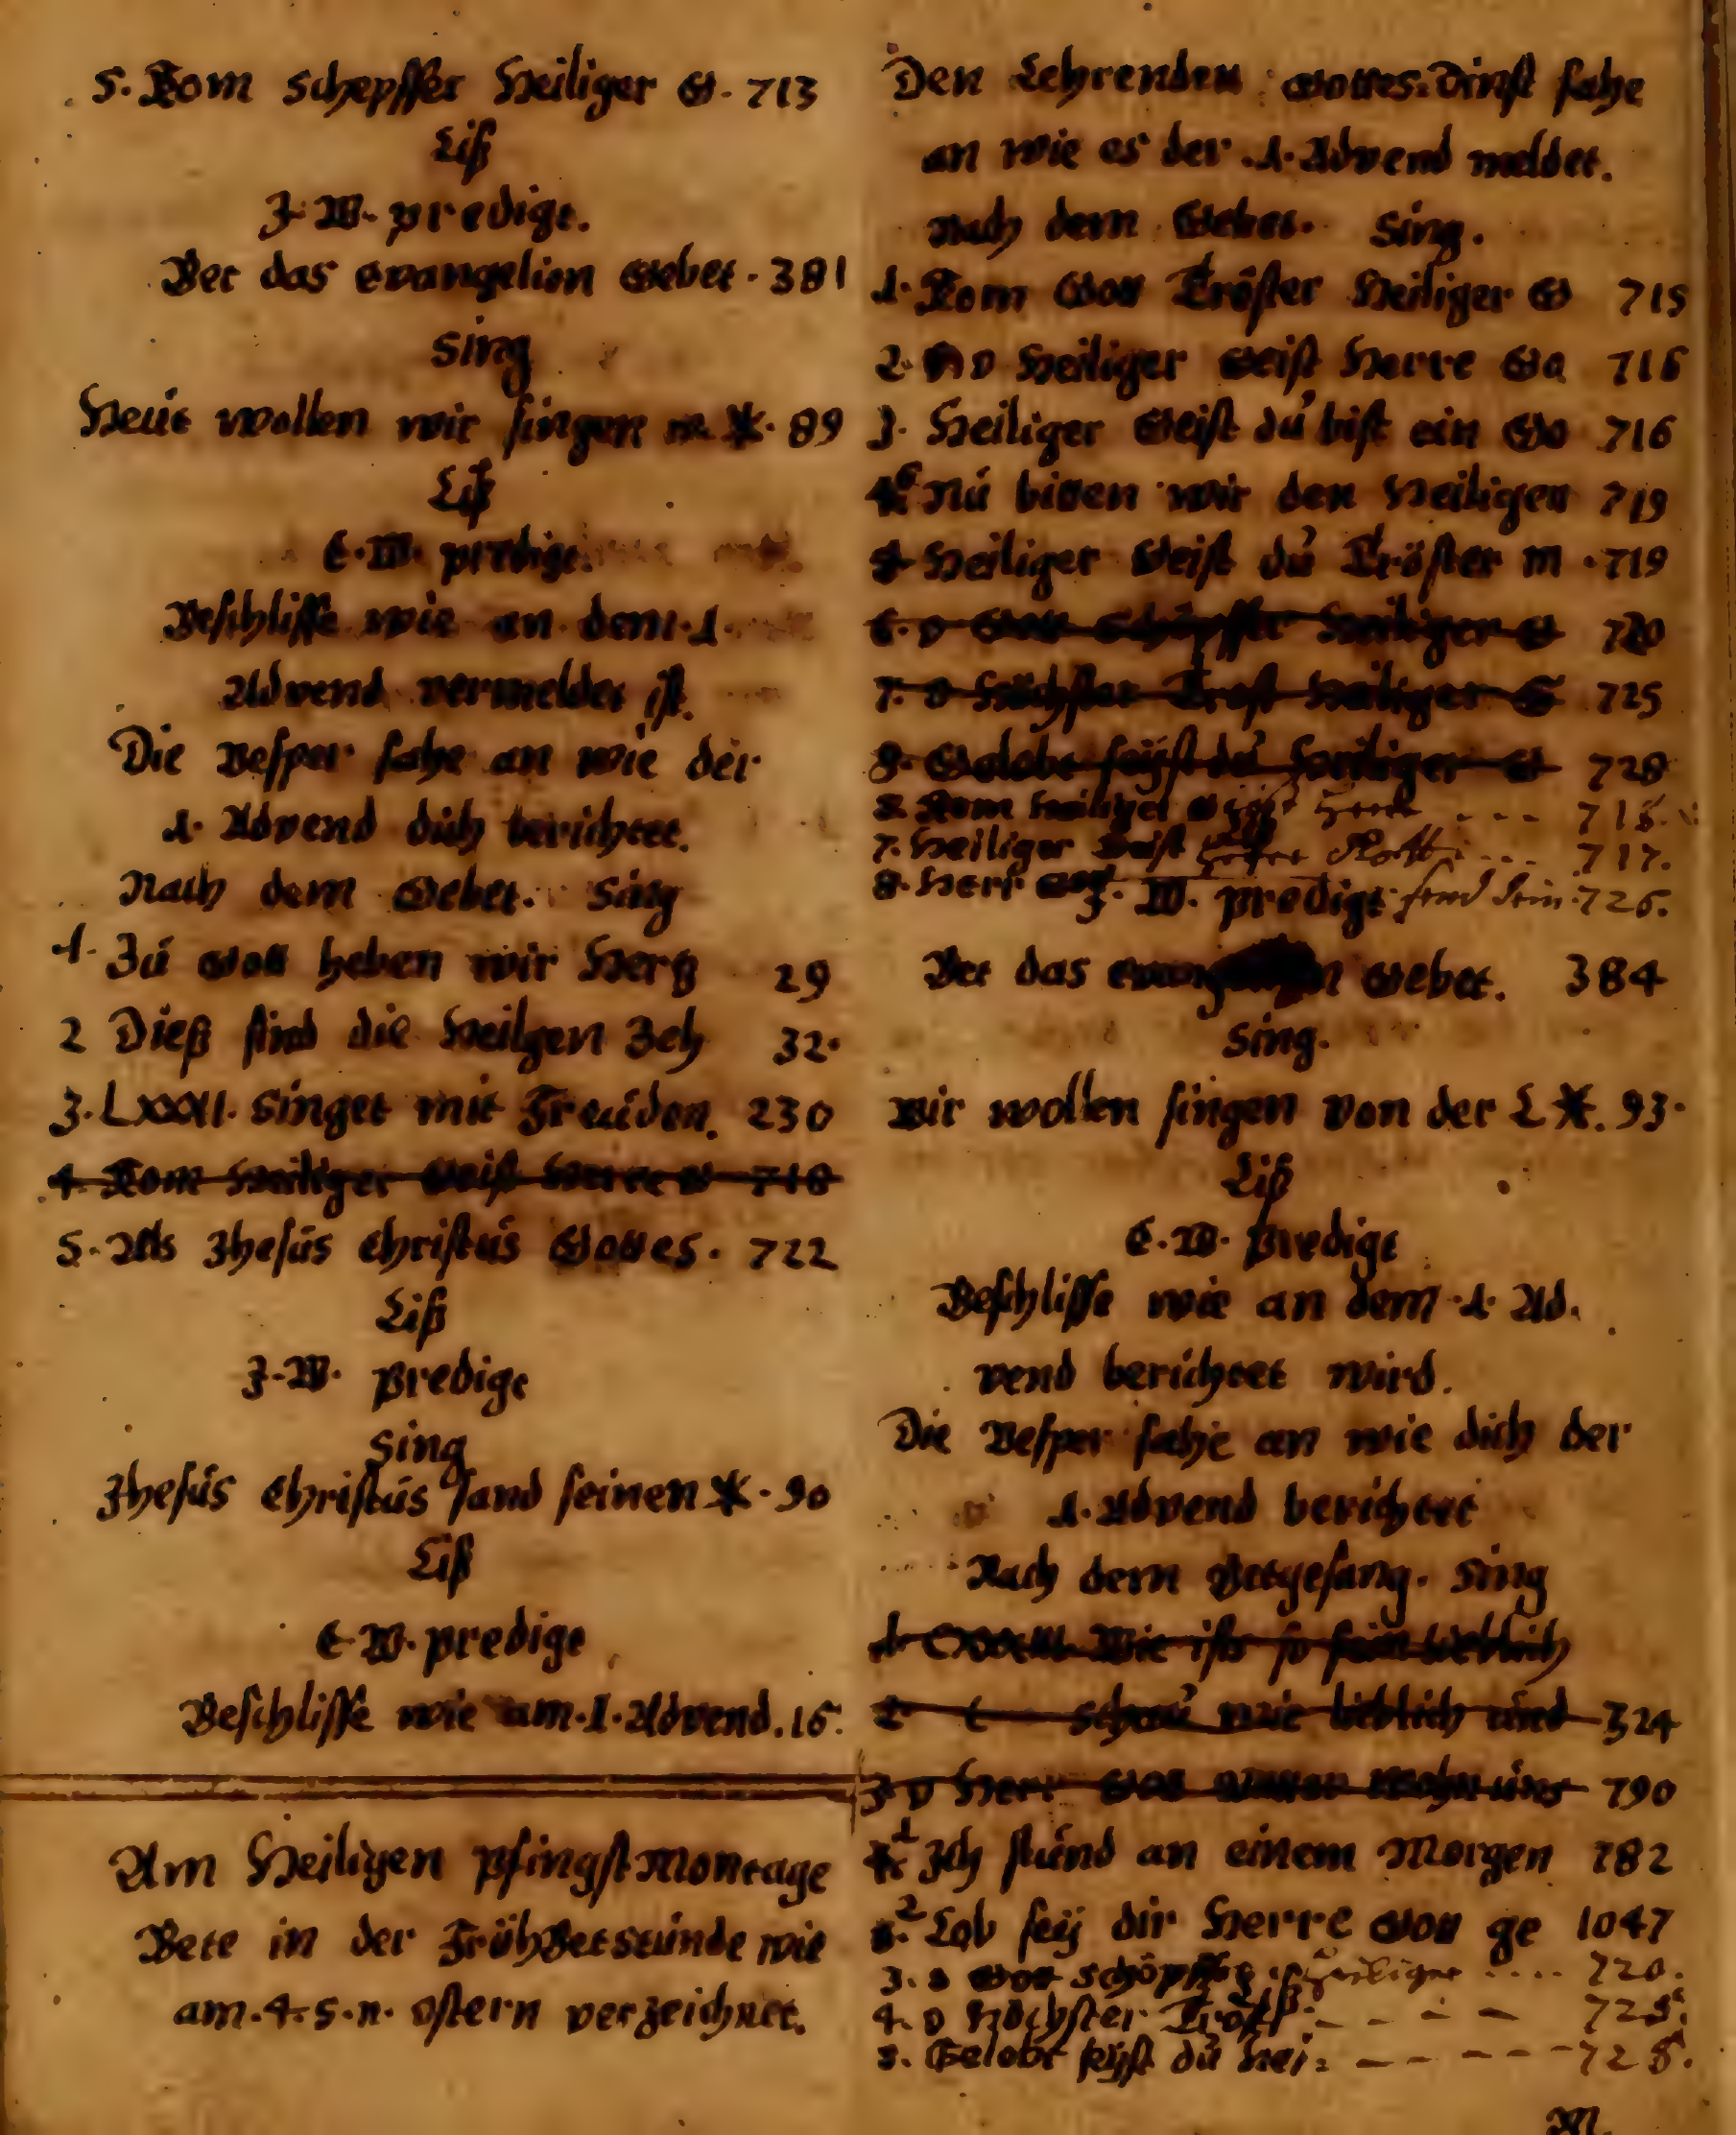 5. Kom Schepffer Heiliger G. 713
Liß
J. W. predigt.
Bet das evangelion Gebet. 381
Sing
Heut wollen wir singen m. X. 89
Liß
E. W. predigt.
Beschlisse wie an dem 1.
Advend vermeldet ist.
Die Vesper fahe an wie der
1. Advend dich berichtet.
Nach dem Gebet. Sing
1. Zu Gott heben wir Hertz 29
2 Dieß sind die Heilgen Zeh 32.
3. LXXXI. Singet mit Freuden. 230
4. Kom Heiliger Geist Herre G 718
5. Als Jhesus Christus Gottes. 722
Liß
J. W. Predigt
Sing
Jhesus Christus sand seinen X. 90
Liß
E. W. predigt
Beschlisse wie am. 1. Advend. 16.
Am Heiligen PfingstMontage
Bete in der FrühBetstunde wie
am. 4. S. n. Ostern verzeichnet.
Den Lehrenden Gottes-Dinst fahe
an wie es der .1. Advend meldet.
Nach dem Gebet. Sing.
1. Kom Gott Tröster Heiliger G 715
2. O Heiliger Geist Herre Go 716
3. Heiliger Geist du bist ein Go 716
6 Nu bitten wir den Heiligen 719
Heiliger Geist du Tröster m. 719
6. O Gott Schöpffer Heiliger G 720
7. O Höchster Trost Heiliger G 725
8. Gelobt seyst du Heiliger G 728
Kom Heiliger Geist Herre --- 718.
7. Heiliger Geist Gott ... 717.
8. Herr Gott send dein. 726.
J. W. predigt
Bet das Gebet. 384
Sing.
Wir wollen singen von der L X. 93.
Liß
E. W. Predigt
Beschlisse wie an dem 1. Ad.
vend berichtet wird.
Die Vesper fahe an wie dich der
1. Advend berichtet
Nach dem Betgesang. Sing
1. Wie ists so fein lieblich
2. Schau wie lieblich und 324
3 O Herr Gott 790
1 Jch stund an einem Morgen 782
2 Lob sey dir Herre Gott ge 1047
3. O Gott Schöpffer Heiliger .... 720.
Liß.
4. O Höchster Trost --- 725.
5. Gelobt seyst du Hei: ---- 728.